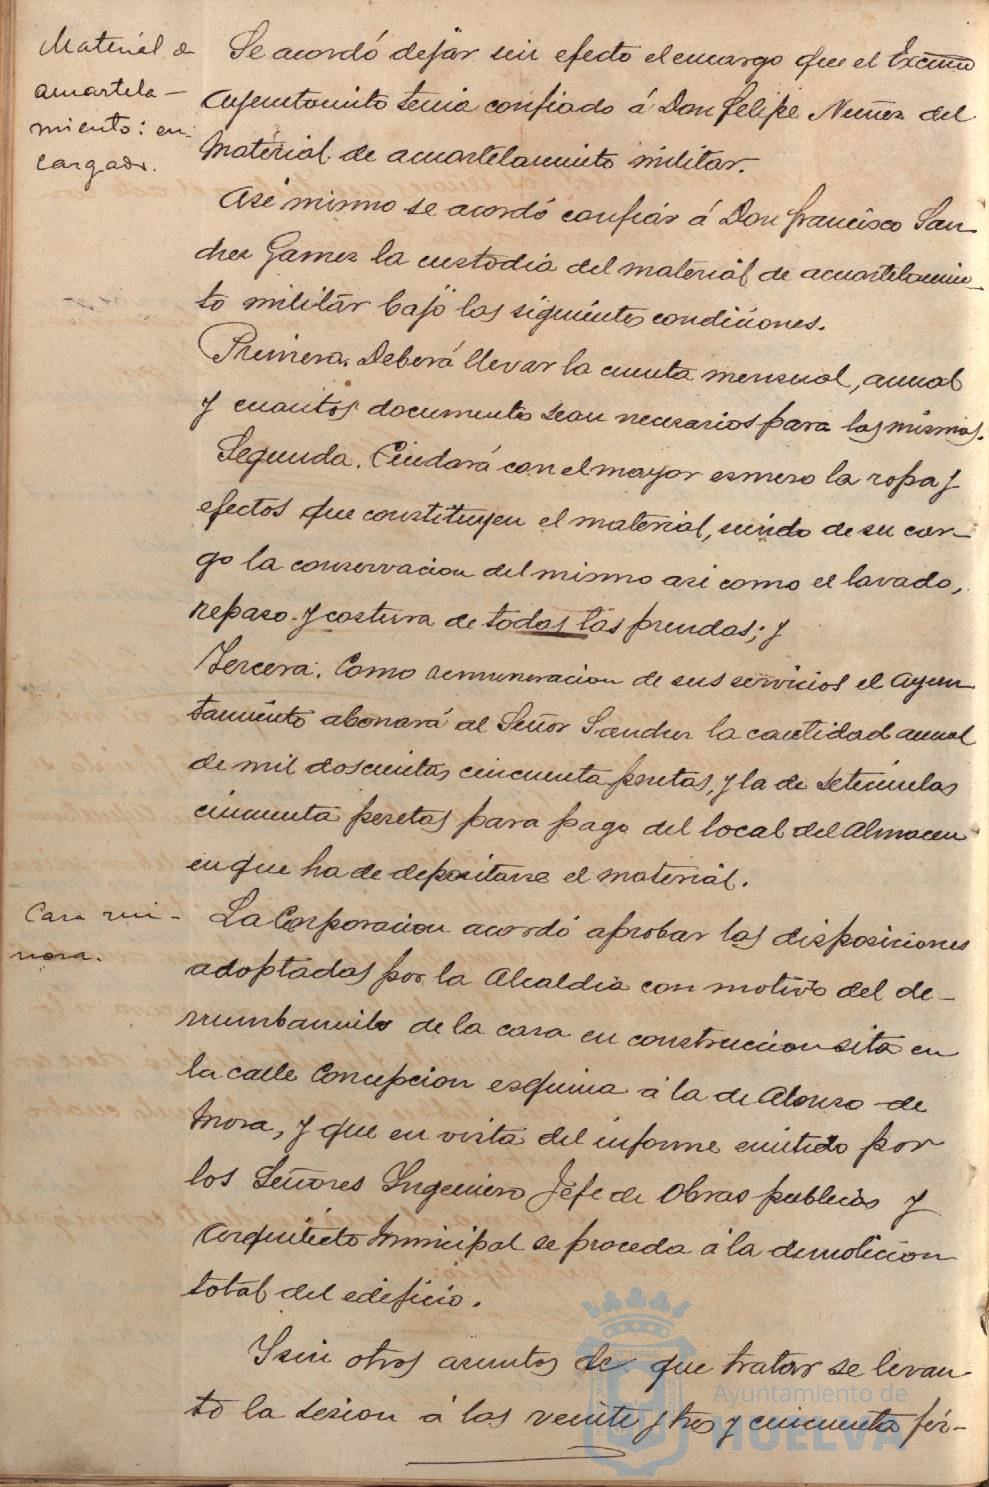 Material de
acuartela-
miento: en-
cargado.
Se acordó dejar sin efecto el encargo que el Excmo
Ayuntamiento tenia confiado á Don Felipe Nuñez del
Material de acuartelamiento militar.
Asi mismo se acordó confiar á Don Francisco San-
chez Gamez la custodia del material de acuartelamien-
to militar bajo las siguientes condiciones.
Primera. Deberá llevar la cuenta mensual, anual
y cuantos documentos sean necesarios para las mismas.
Segunda. Cuidará con el mayor esmero la ropa y
efectos que constituyen el material, siendo de su car-
go la conservacion del mismo asi como el lavado,
repaso y costura de todas las prendas; y
Tercera. Como remuneracion de sus servicios el Ayun-
tamiento abonará al Señor Sanchez la cantidad anual
de mil doscientas cincuenta pesetas, y la de setecientas
cincuenta pesetas para pago del local del Almacen
en que ha de depositarse el material.
Casa rui-
nosa.
La Corporacion acordó aprobar las disposiciones
adoptadas por la Alcaldia con motivo del de-
rrumbamiento de la casa en construccion sita en
la calle Concepcion esquina á la de Alonso de
Mora, y que en vista del informe emitido por
los Señores Ingeniero Jefe de Obras publicas y
Arquitecto Municipal se proceda á la demolicion
total del edificio.
Y sin otros asuntos de que tratar se levan-
tó la sesion á las veinte y tres y cincuenta fir-
Ayuntamiento de
HUELVA